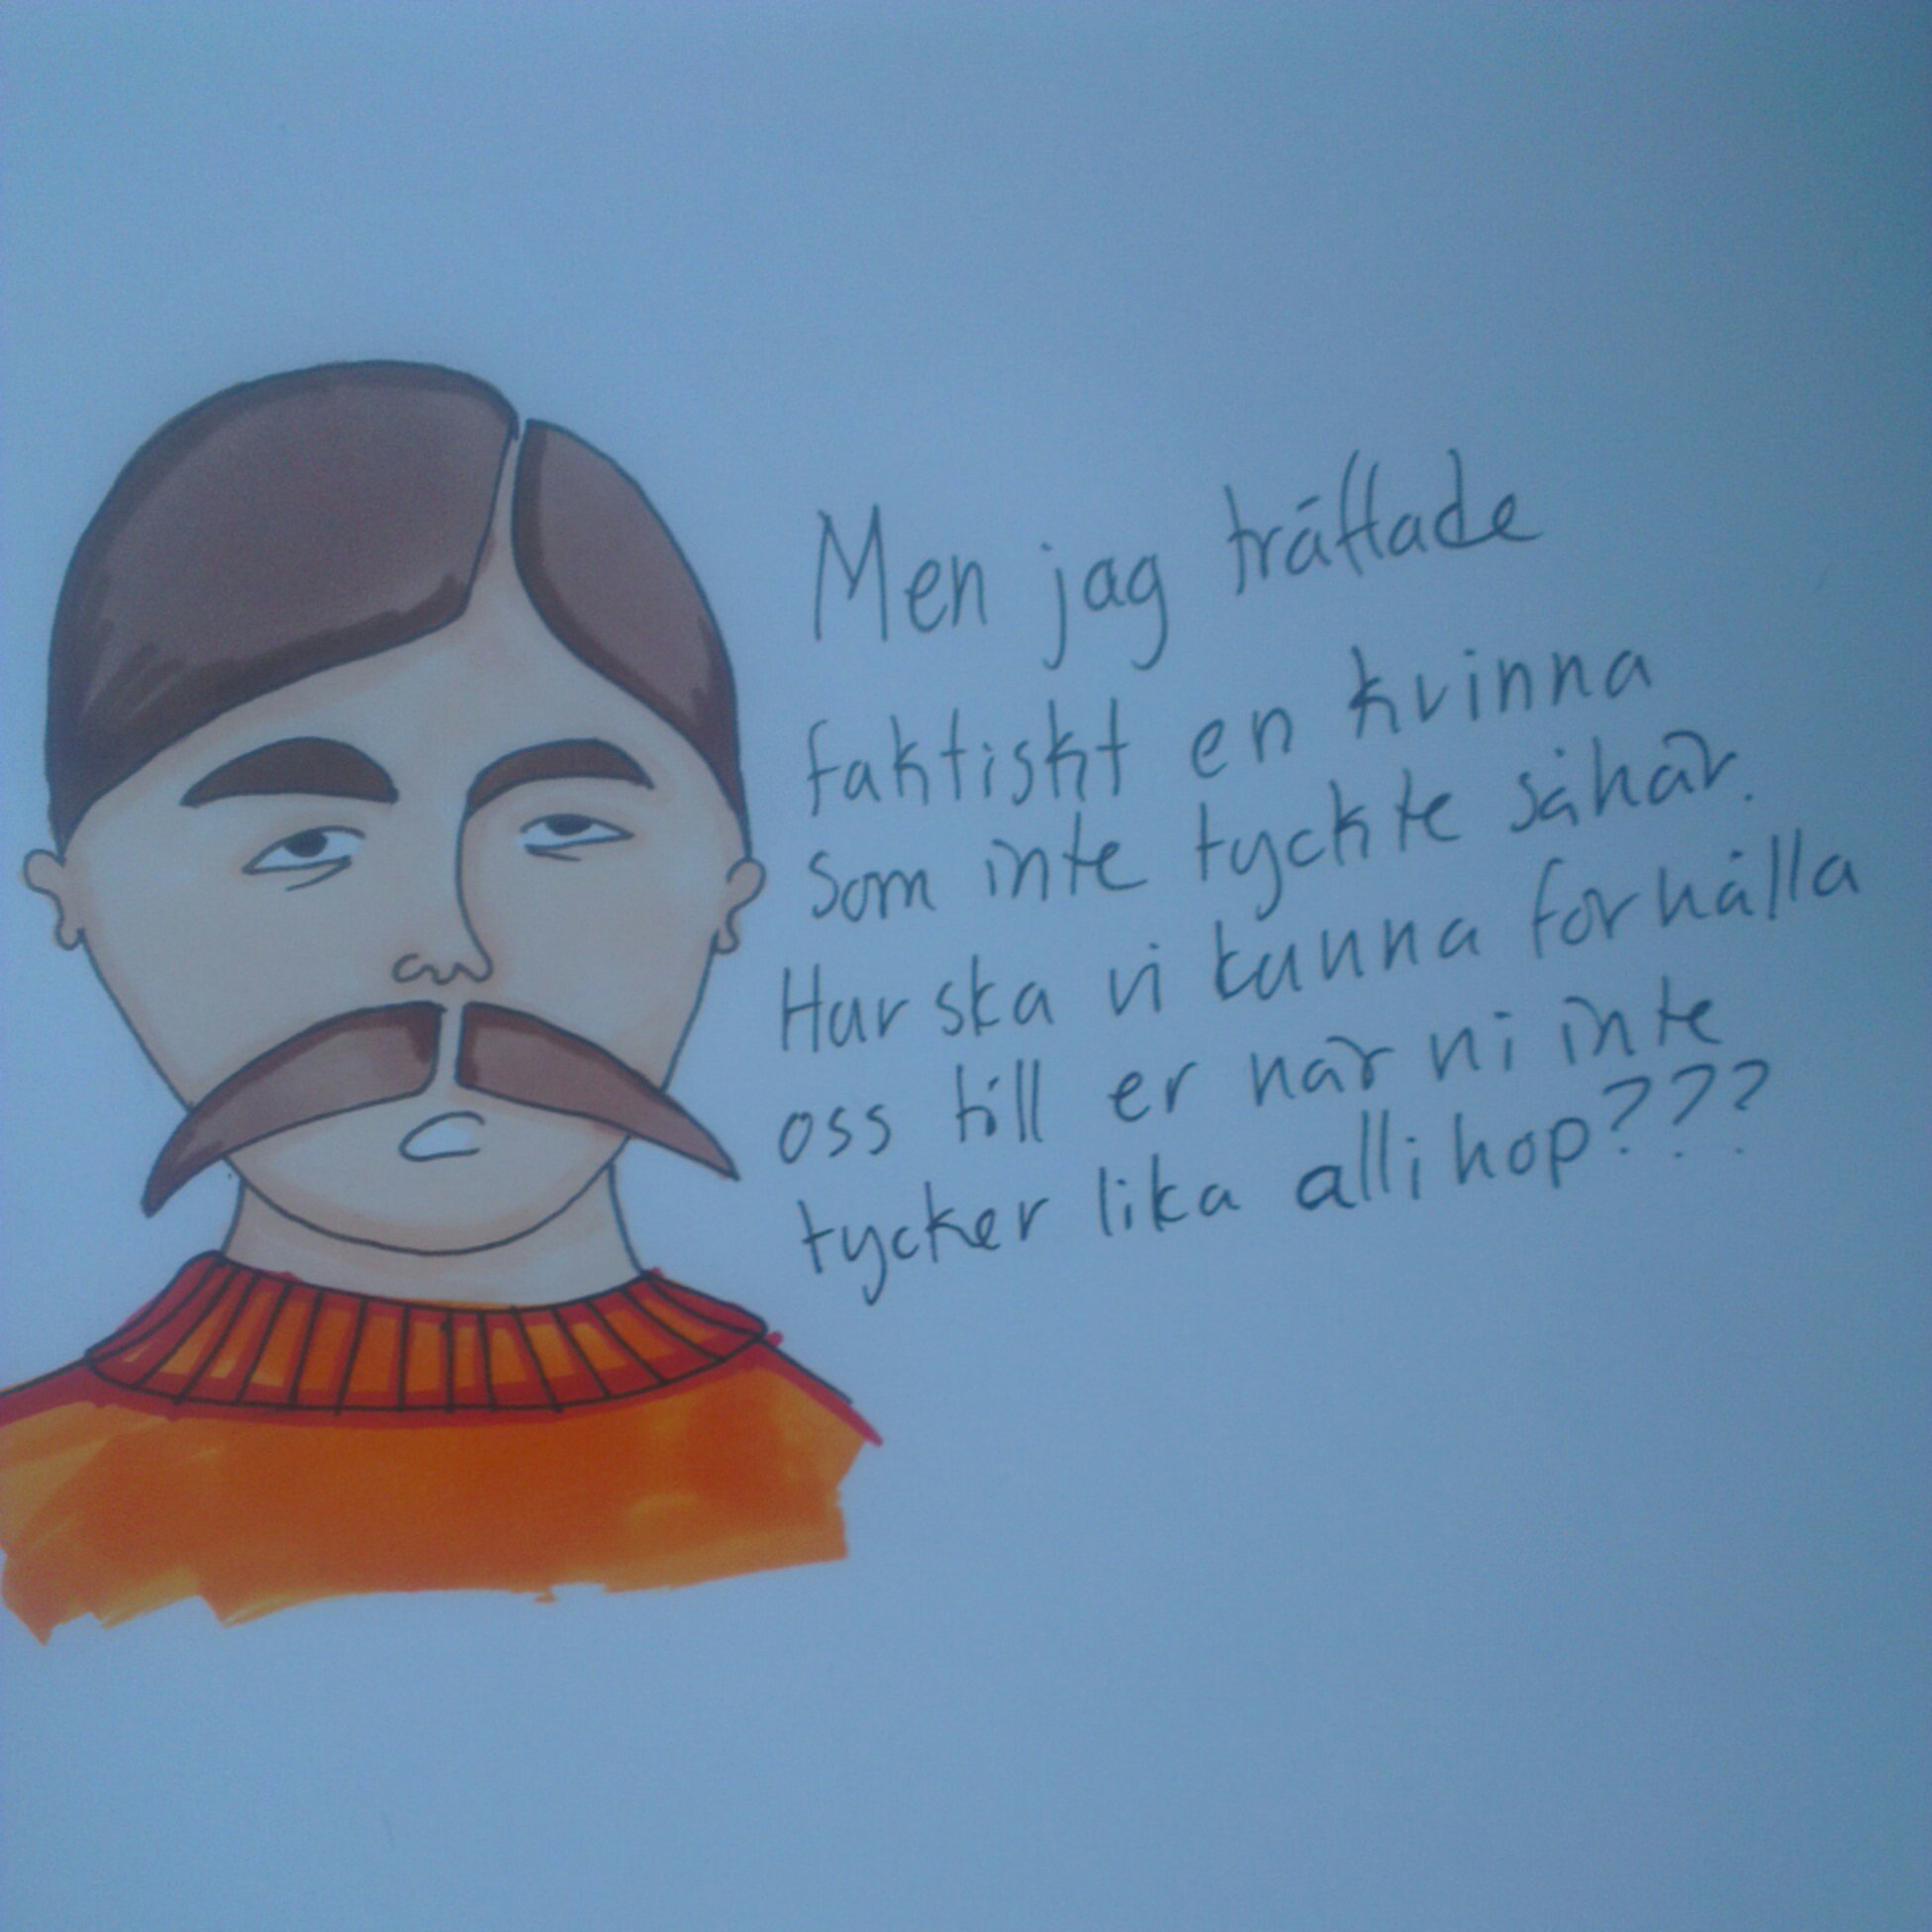 Men jag träffade
faktiskt en kvinna
som inte tyckte såhär.
Hur ska vi kunna förhålla
oss till er när ni inte
tycker lika allihop???